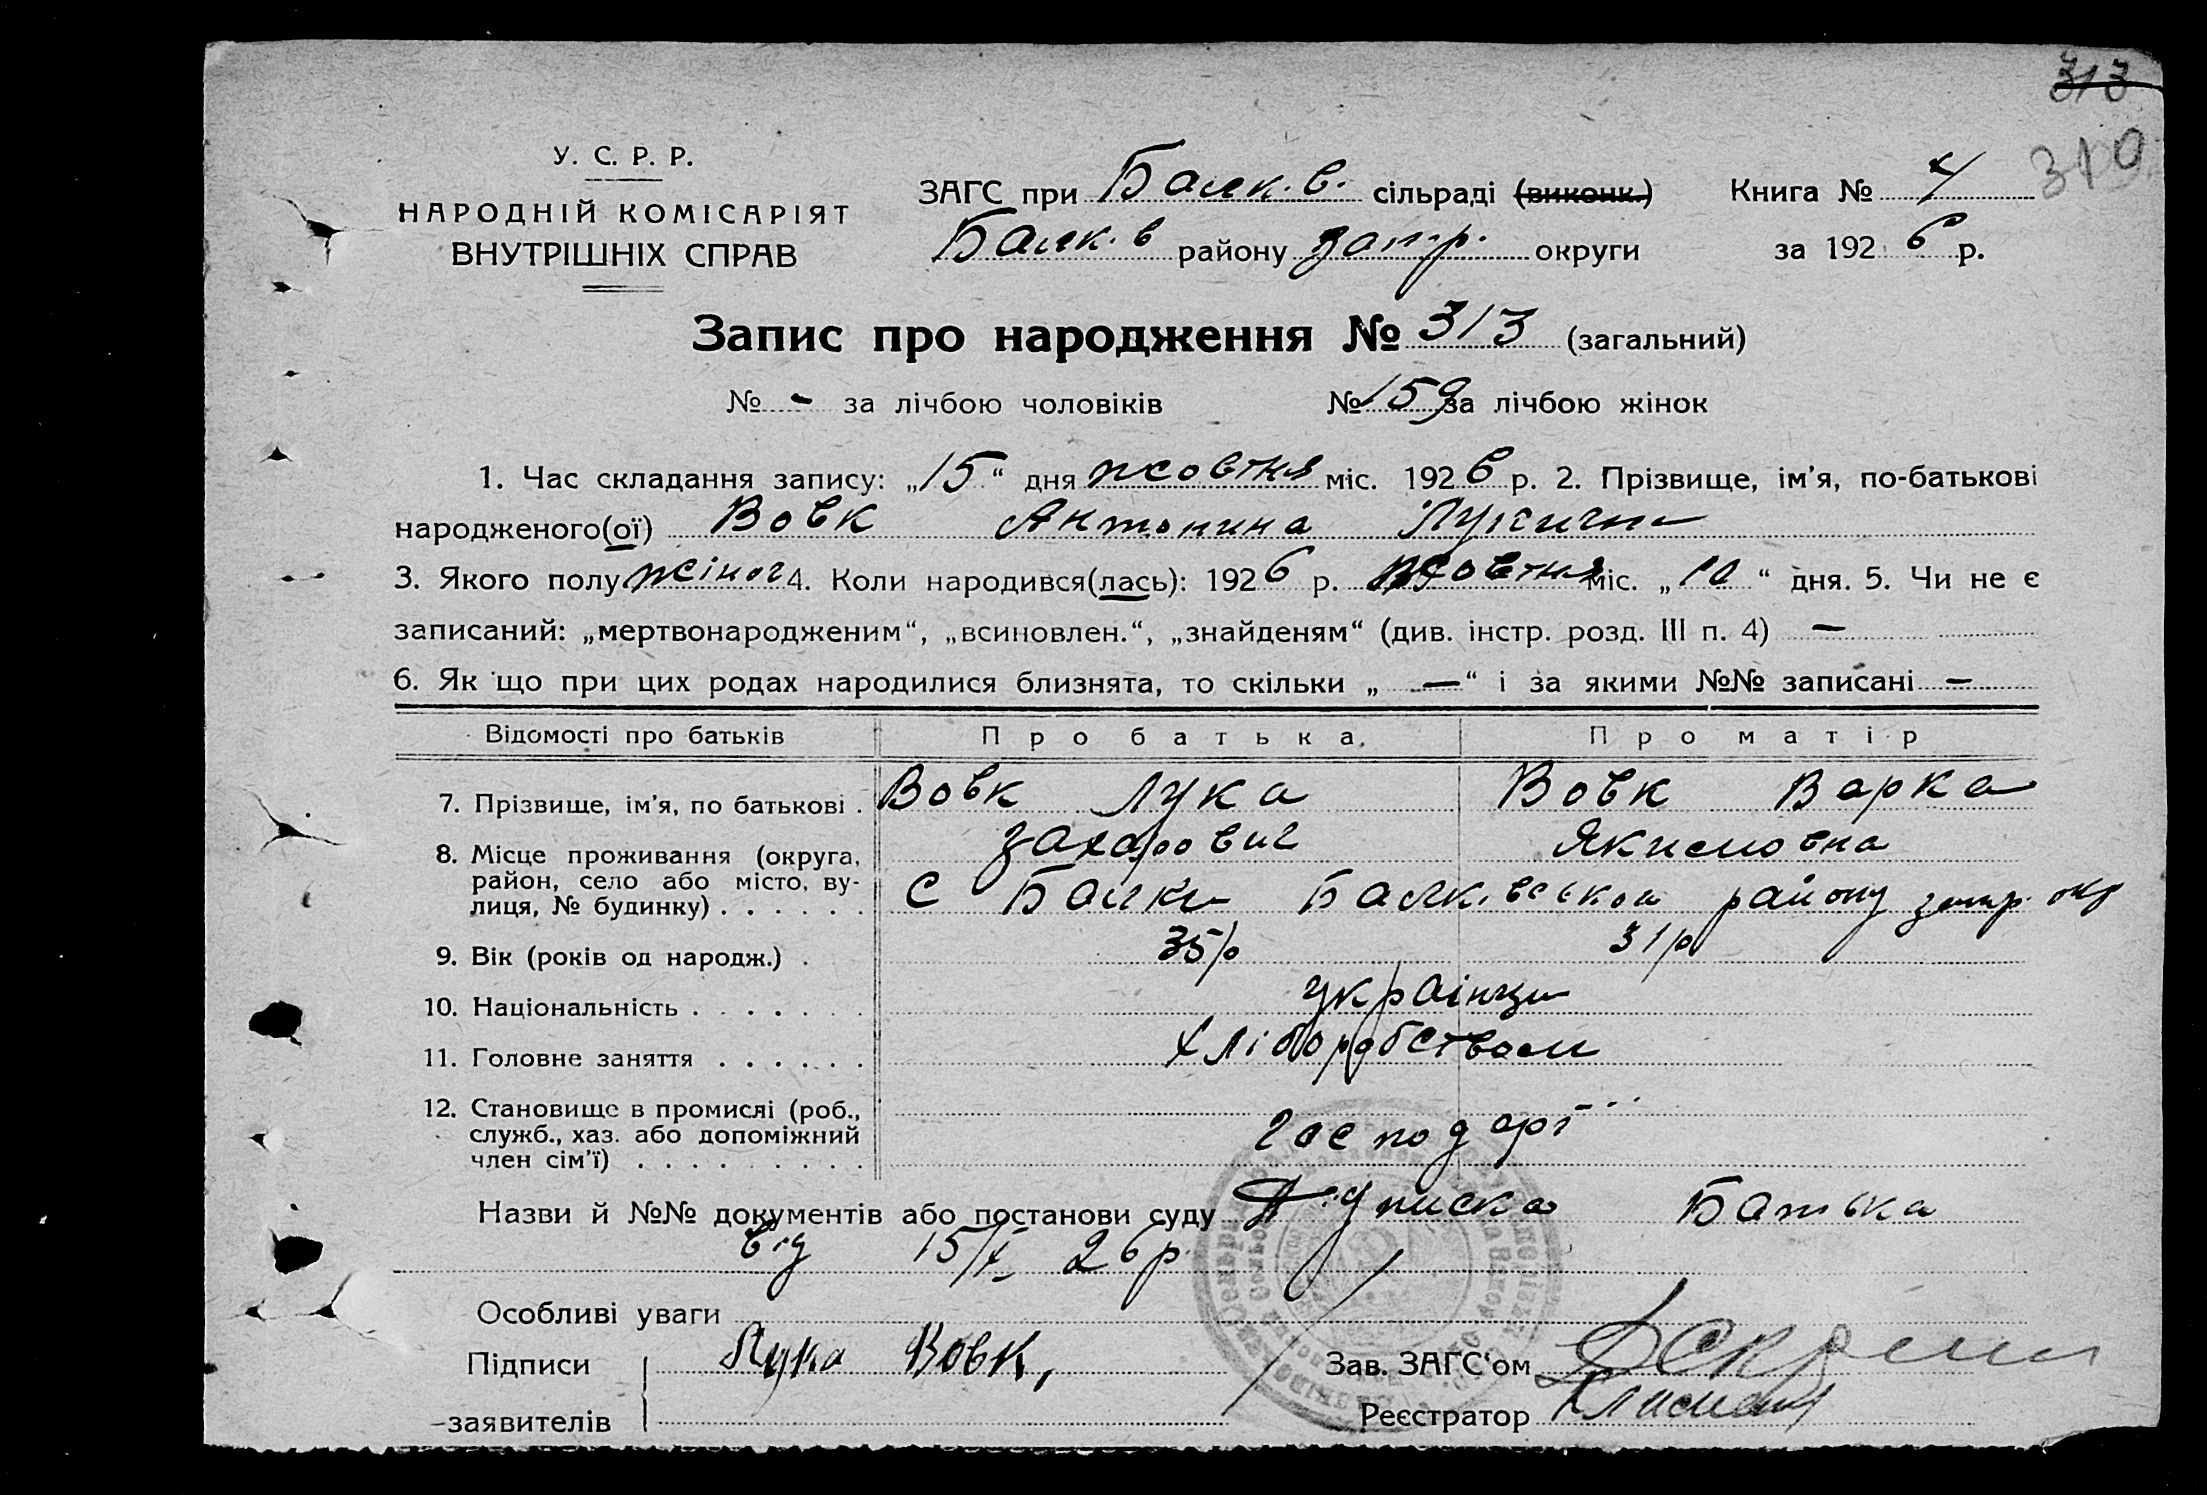 313
319
У. С. Р. Р.
НАРОДНІЙ КОМІСАРІЯТ
ВНУТРІШНІХ СПРАВ
ЗАГС при Балк. в. сільраді (виконк.) Книга № 4
Балк. в району Запр. округи за 1926 р.
Запис про народження № 313 (загальний)
№ - за лічбою чоловіків № 159 за лічбою жінок
1. Час складання запису: „15“ дня жовтня міс. 1926 р. 2. Прізвище, ім’я, по-батькові
народженого(ої) Вовк Антонина Лукична
3. Якого полу жіноч 4. Коли народився(лась): 1926 р. жовтня міс. „10“ дня. 5. Чи не є
записаний: „мертвонародженим“, „всиновлен.“, „знайденям“ (див. інстр. розд. III п. 4) —
6. Як що при цих родах народилися близнята, то скільки „ — “ і за якими №№ записані —
Відомості про батьків Про батька Про матір
7. Прізвище, ім’я, по батькові . Вовк Лука Вовк Варка
Захарович Якимовна
8. Місце проживання (округа,
район, село або місто, ву-
лиця, № будинку) . . . . . . С Балки Балківською району Запр. окр
9. Вік (років од народж.) . 35 р 31 р
10. Національність . . . . . . . українци
11. Головне заняття . . . . . . хліборобством
12. Становище в промислі (роб.,
служб., хаз. або допоміжний
член сім’ї) . . . . . . . . . господарі
Назви й №№ документів або постанови суду Підписка Батька
від 15/X 26 р.
Особливі уваги
Підписи Лука Вовк, Зав. ЗАГС‘ом
заявителів Реєстратор